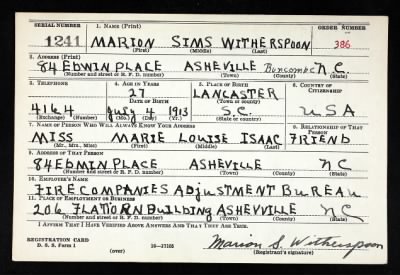 SERIAL NUMBER 1. NAME (Print) ORDER NUMBER
1241 MARION SIMS WITHERSPOON 386
(First) (Middle) (Last)
2. ADDRESS (Print)
84 EDWIN PLACE ASHEVILLE Buncombe N C
(Number and street or R. F. D. number) (Town) (County) (State)
3. TELEPHONE 4. AGE IN YEARS 5. PLACE OF BIRTH 6. COUNTRY OF CITIZENSHIP
27 LANCASTER
DATE OF BIRTH (Town or county)
4164 July 4 1913 S.C. U S A
(Exchange) (Number) (Mo.) (Day) (Yr.) (State or country)
7. NAME OF PERSON WHO WILL ALWAYS KNOW YOUR ADDRESS 8. RELATIONSHIP OF THAT PERSON
MISS MARIE LOUISE ISAAC FRIEND
(Mr., Mrs., Miss) (First) (Middle) (Last)
9. ADDRESS OF THAT PERSON
84 EDWIN PLACE ASHEVILLE N C
(Number and street or R. F. D. number) (Town) (County) (State)
10. EMPLOYER'S NAME
FIRE COMPANIES ADJUSTMENT BUREAU
11. PLACE OF EMPLOYMENT OR BUSINESS
206 FLATIORN BUILDING ASHEVILLE NC
(Number and street or R. F. D. number) (Town) (County) (State)
I AFFIRM THAT I HAVE VERIFIED ABOVE ANSWERS AND THAT THEY ARE TRUE.
REGISTRATION CARD
D. S. S. Form 1 (over) 16—17105 Marion S. Witherspoon
(Registrant's signature)